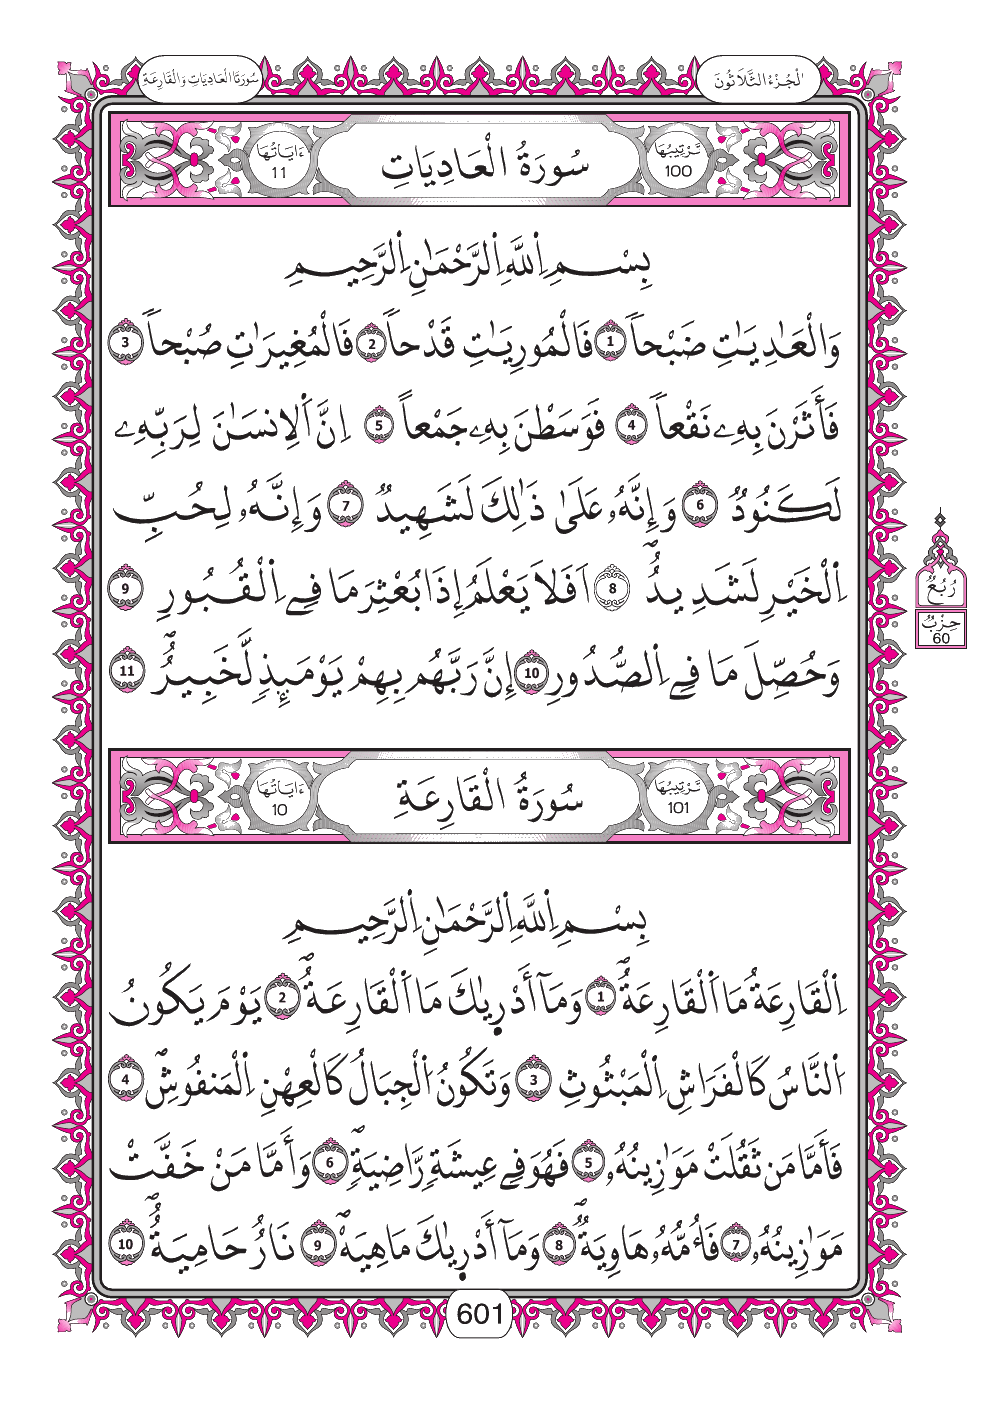 الْجُزْءُ الثَّلَاثُونَ
سُورَتَا الْعَادِيَاتِ وَالْقَارِعَةِ
تَرْتِيبُهَا 100
سُورَةُ الْعَادِيَاتِ
ءَايَاتُهَا 11
بِسْمِ اِ۬للَّهِ اِ۬لرَّحْمَٰنِ اِ۬لرَّحِيمِ
وَالْعَٰدِيَٰتِ ضَبْحاٗ 1 فَالْمُورِيَٰتِ قَدْحاٗ 2 فَالْمُغِيرَٰتِ صُبْحاٗ 3
فَأَثَرْنَ بِهِۦ نَقْعاٗ 4 فَوَسَطْنَ بِهِۦ جَمْعاً 5 اِنَّ اَ۬لِانسَٰنَ لِرَبِّهِۦ
لَكَنُودٞ 6 وَإِنَّهُۥ عَلَىٰ ذَٰلِكَ لَشَهِيدٞ 7 وَإِنَّهُۥ لِحُبِّ
اِ۬لْخَيْرِ لَشَدِيدٌۖ 8 اَفَلَا يَعْلَمُ إِذَا بُعْثِرَ مَا فِے اِ۬لْقُبُورِ 9
وَحُصِّلَ مَا فِے اِ۬لصُّدُورِ 10 إِنَّ رَبَّهُم بِهِمْ يَوْمَئِذٖ لَّخَبِيرٌۖ 11
رُبُعُ
حِزْبُ
60
تَرْتِيبُهَا 101
سُورَةُ الْقَارِعَةِ
ءَايَاتُهَا 10
بِسْمِ اِ۬للَّهِ اِ۬لرَّحْمَٰنِ اِ۬لرَّحِيمِ
اِ۬لْقَارِعَةُ مَا اَ۬لْقَارِعَةُۖ 1 وَمَآ أَدْر۪يٰكَ مَا اَ۬لْقَارِعَةُۖ 2 يَوْمَ يَكُونُ
اُ۬لنَّاسُ كَالْفَرَاشِ اِ۬لْمَبْثُوثِ 3 وَتَكُونُ اُ۬لْجِبَالُ كَالْعِهْنِ اِ۬لْمَنفُوشِۖ 4
فَأَمَّا مَن ثَقُلَتْ مَوَٰزِينُهُۥ 5 فَهُوَ فِے عِيشَةٖ رَّاضِيَةٖۖ 6 وَأَمَّا مَنْ خَفَّتْ
مَوَٰزِينُهُۥ 7 فَأُمُّهُۥ هَاوِيَةٞۖ 8 وَمَآ أَدْر۪يٰكَ مَاهِيَهْۖ 9 نَارٌ حَامِيَةٌۖ 10
601